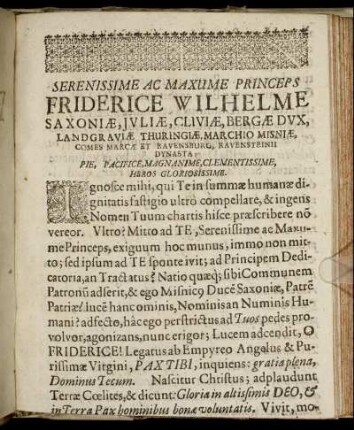 SERENISSIME AC MAXUME PRINCEPS
FRIDERICE WILHELME
SAXONIÆ, JVLIÆ, CLIVIÆ, BERGÆ DVX,
LANDGRAVIÆ THURINGIÆ, MARCHIO MISNIÆ,
COMES MARCÆ ET RAVENSBURG, RAVENSTEINII
DYNASTA:
PIE, PACIFICE, MAGNANIME, CLEMENTISSIME,
HEROS GLORIOSISSIME.
Ignosce mihi, qui Te in summæ humanæ di-
gnitatis fastigio ultrò compellare, & ingens
Nomen Tuum chartis hisce præscribere nō
vereor. Vltro? Mitto ad TE, Serenissime ac Maxu-
me Princeps, exiguum hoc munus, immo non mit-
to; sed ipsum ad TE sponte ivit; ad Principem Dedi-
catoria, an Tractatus? Natio quæq; sibi Communem
Patronū adserit, & ego Misnicō Ducē Saxoniæ, Patrē
Patriæ! lucē hanc ominis, Nominis an Numinis Hu-
mani? adfecto, hāc ego perstrictus ad Tuos pedes pro-
volvor, agonizans, nunc erigor; Lucem adcendit, O
FRIDERICE! Legatus ab Empyreo Angelus & Pu-
rissimæ Virgini, PAX TIBI, inquiens: gratia plena,
Dominus Tecum. Nascitur Christus; adplaudunt
Terræ Cœlites, & dicunt: Gloria in altissimis DEO, &
in Terra Pax hominibus bonæ voluntatis. Vivit, mo-